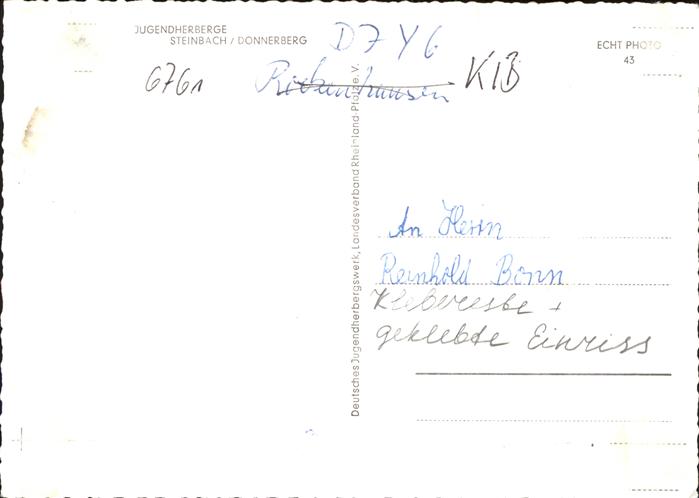 JUGENDHERBERGE
STEINBACH / DONNERBERG
D7Y6
ECHT PHOTO
43
6761
KIB
Deutsches Jugendherbergswerk, Landesverband Rheinland-Pfalz e. V.
An Herrn
Reinhold Bonn
Klebereste +
geklebte Einriss